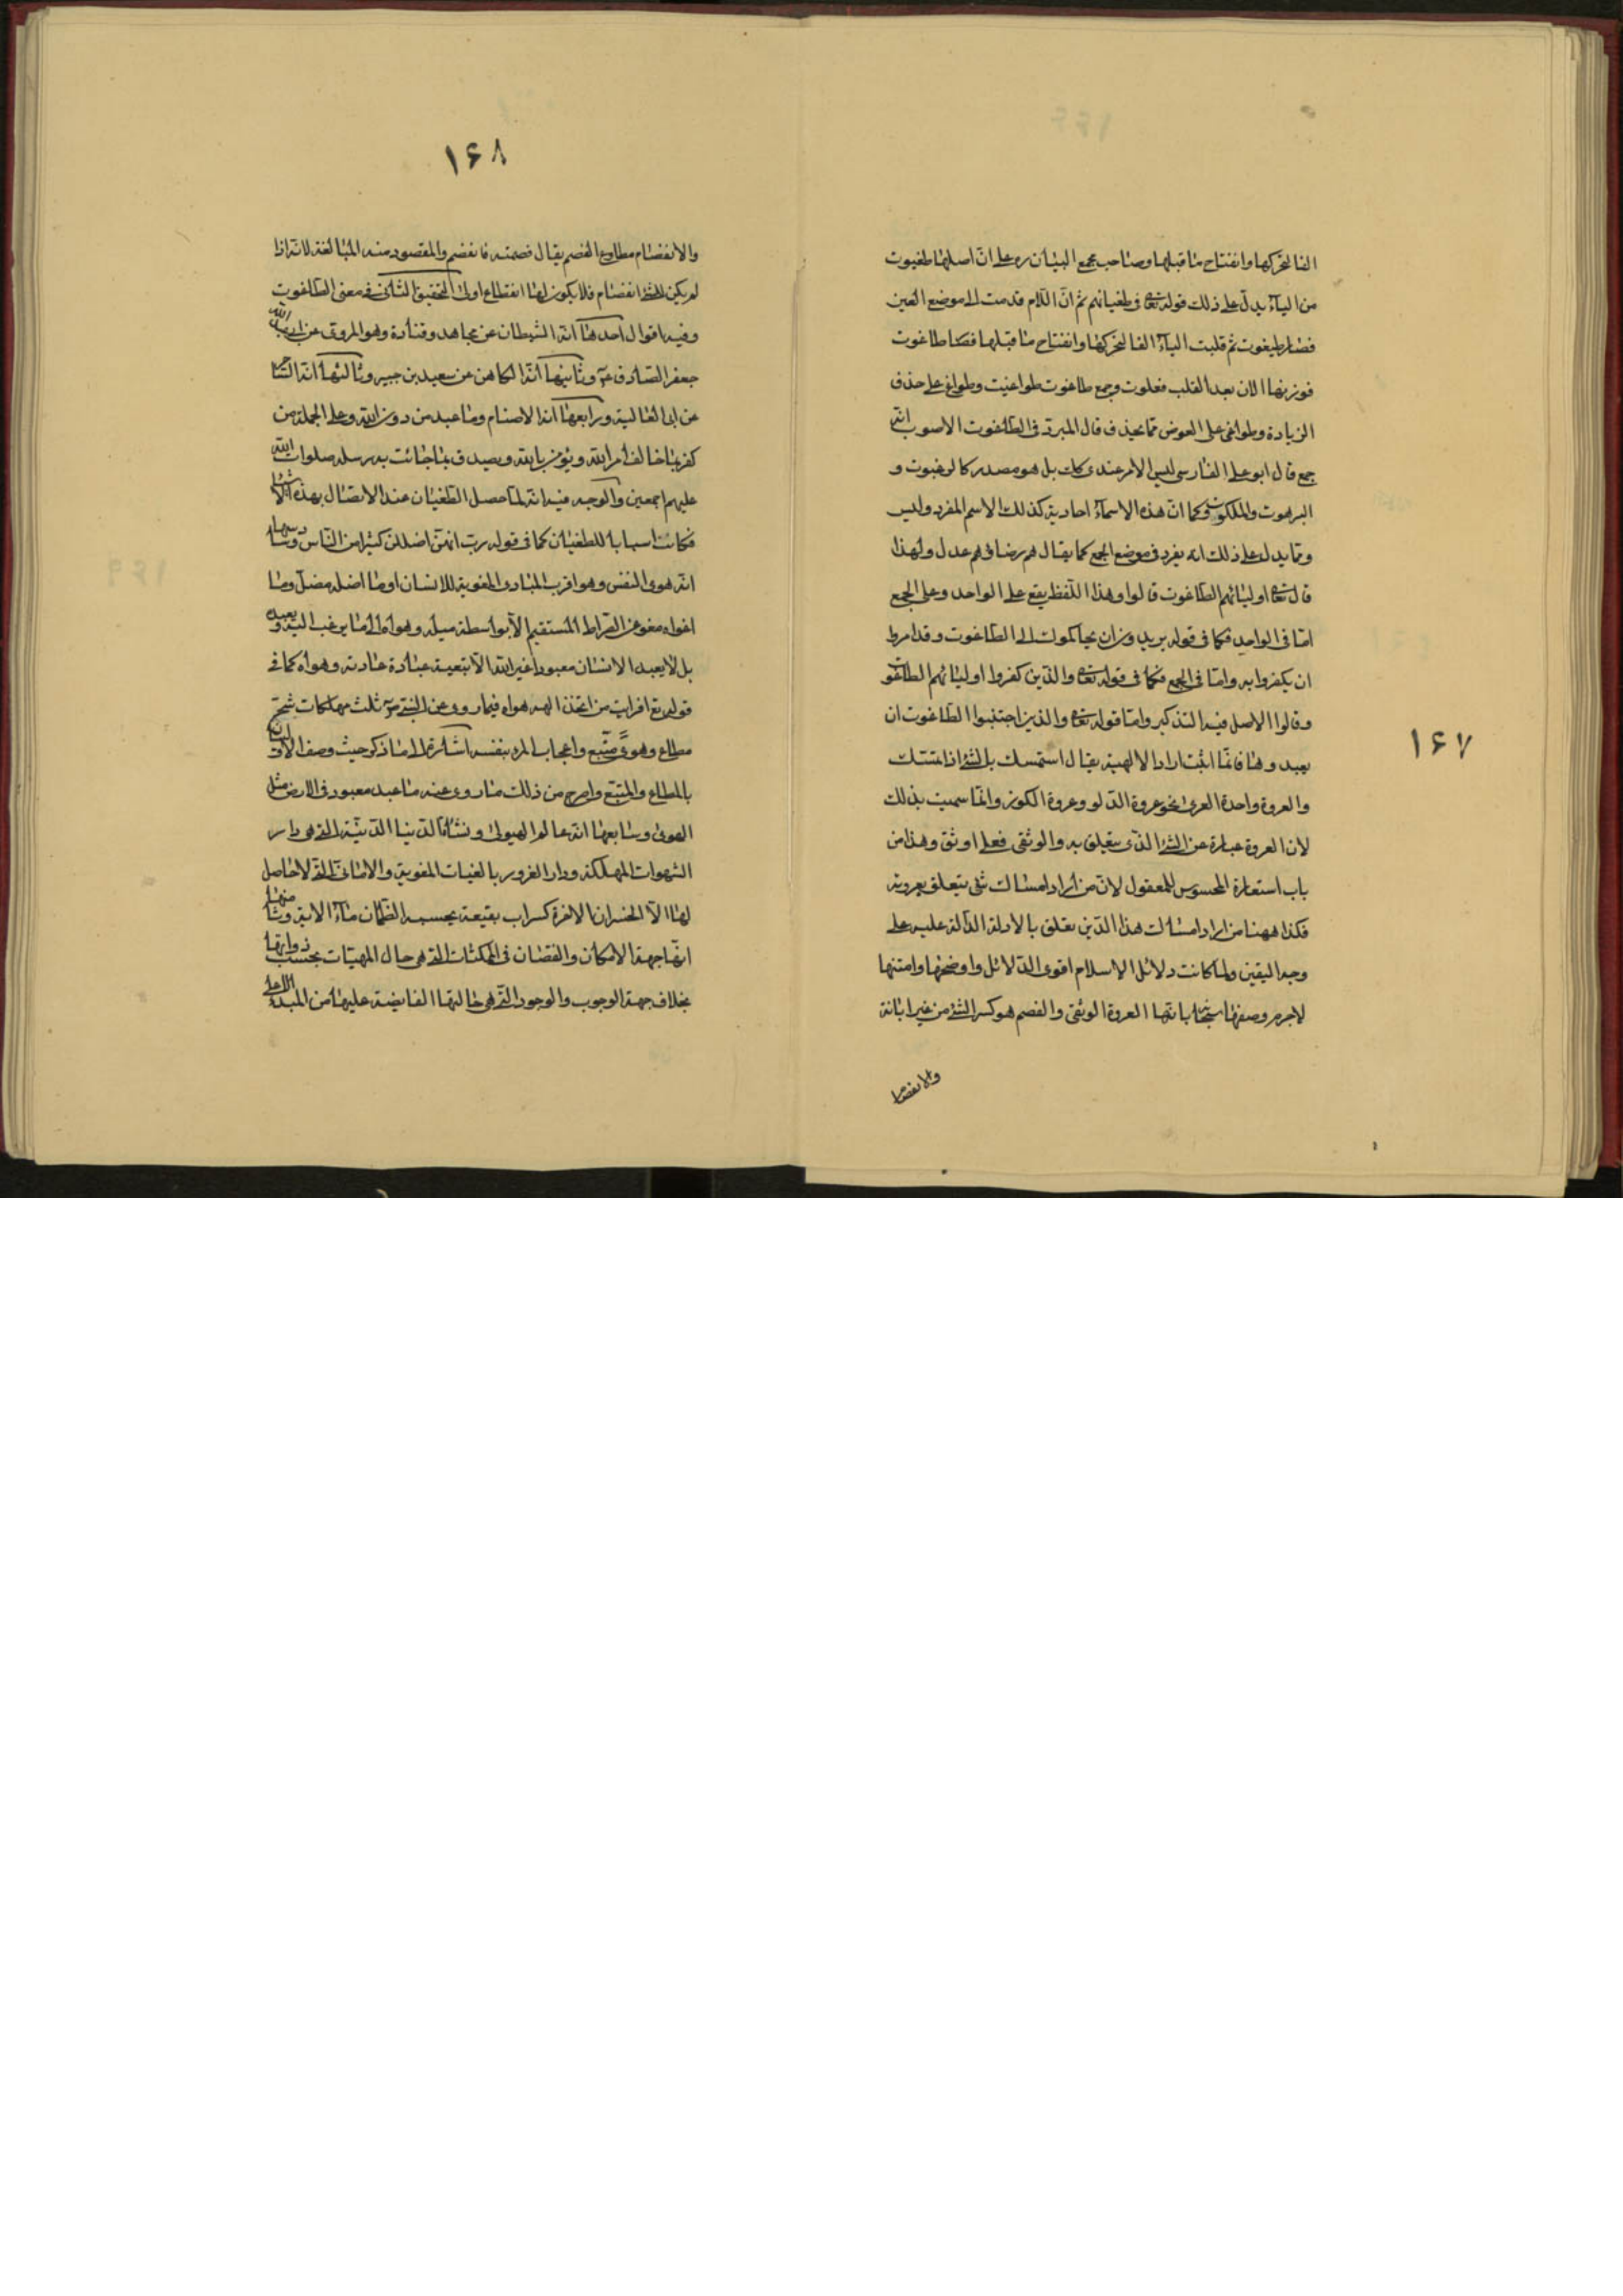 ١۶٧
الفا لتحركها وانفتاح ما قبلها وصاحب مجمع البيان ره على انّ اصلها طغيوت
من الياء يدل على ذلك قوله تعالى فى طغيانهم ثم انّ اللام قدمت الى موضع العين
فصار طيغوت ثم قلبت الياء الفا لتحركها وانفتاح ما قبلها فصار طاغوت
فوزنها الان بعد القلب فعلوت وجمع طاغوت طواغيت وطواغ على حذف
الزيادة وطواغى على العوض مما يحذف قال المبرد فى الطاغوت الاصوب انه
جمع قال ابو على الفارسى ليس الامر عندى كك بل هو مصدر كالرغبوت و
الرهبوت والملكوت وكما انّ هذه الاسماء احادية كذلك الاسم المفرد وليس
ومما يدل على ذلك انه يفرد فى موضع الجمع كما يقال هم رضا وهم عدل ولهذا
قال تعالى اوليائهم الطاغوت قالوا وهذا اللفظ يقع على الواحد وعلى الجمع
امّا فى الواحد فكما فى قوله يريدون ان يحاكموا الى الطاغوت وقد امروا
ان يكفروا به وامّا فى الجمع فكما فى قوله تعالى والذين كفروا اوليائهم الطاغوت
وقالوا الاصل فيه التذكير وامّا قوله تعالى والذين اجتنبوا الطاغوت ان
يعبدوها فانما انّث اراد الالهية يقال استمسك بالشئ اذا تمسّك
والعروة واحدة العرى نحو عروة الدلو وعروة الكوز وانّما سميت بذلك
لان العروة عبارة عن الشئ الذى يتعلق به والوثقى فعلى اوثق وهذا من
باب استعارة المحسوس للمعقول لانّ من اراد امساك شئ يتعلق بعروته
فكذا ههنا من اراد امساك هذا الدين تعلق بالادلة الدالة عليه على
وجه اليقين ولما كانت دلائل الاسلام اقوى الدلائل واوضحها وامتنها
لاجرم وصفها سبحانه بانها العروة الوثقى والفصم هو كسر الشئ من غير ابانة
والانفصام
١۶٨
والانفصام مطاوع الفصم يقال فصمته فانفصم والمقصود منه المبالغة لانه اذا
لم يكن للشئ انفصام فلا يكون لها انقطاع اولى التحقيق الثانى فى معنى الطاغوت
وفيه اقوال احدها انه الشيطان عن مجاهد وقتادة وهو المروى عن ابى عبد الله
جعفر الصادق ع وثانيها انه الكاهن عن سعيد بن جبير وثالثها انه الساحر
عن ابى العالية ورابعها انه الاصنام وما عبد من دون الله وعلى الجملة من
كفر بما خالف امر الله ويؤمن بالله ويصدق بما جائت به رسله صلوات الله
عليهم اجمعين والوجه فيه انه لما حصل الطغيان عند الاتصال بهذه الاشياء
فكانت اسبابا للطغيان كما فى قوله رب انهن اضللن كثيرا من الناس وسادسها
انه هوى النفس وهو اقرب المبادى المغوية للانسان او ما اضله مضلّ وما
اغواه مغو عن الصراط المستقيم الا بواسطة ميله وهواه الى ما يرغب اليه ويعبده
بل لا يعبد الانسان معبودا غير الله الا بتبعية عبادة عادته وهواه كما فى
قوله تع افرايت من اتخذ الهه هواه فيما روى عن النبى ص ثلث مهلكات شحّ
مطاع وهوى متّبع واعجاب المرء بنفسه اشارة الى ما ذكر حيث وصف الاولان
بالمطاع والمتبع واصرح من ذلك ما روى عنه ما عبد معبود فى الارض مثل
الهوى وسابعها انه عالم الهيولى ونشأة الدنيا الدنيّة التى هى دار
الشهوات المهلكة ودار الغرور بالغيات المغوية والامانى التى لا حاصل
لها الا الخسران الاخرة كسراب بقيعة يحسبه الظمآن ماء الاية وثامنها
انها جهة الامكان والنقصان فى الممكنات التى هى حال المهيّات بحسب ذواتها
بخلاف جهة الوجوب والوجود التى هى حالتها الفايضة عليها من المبدء الاعلى